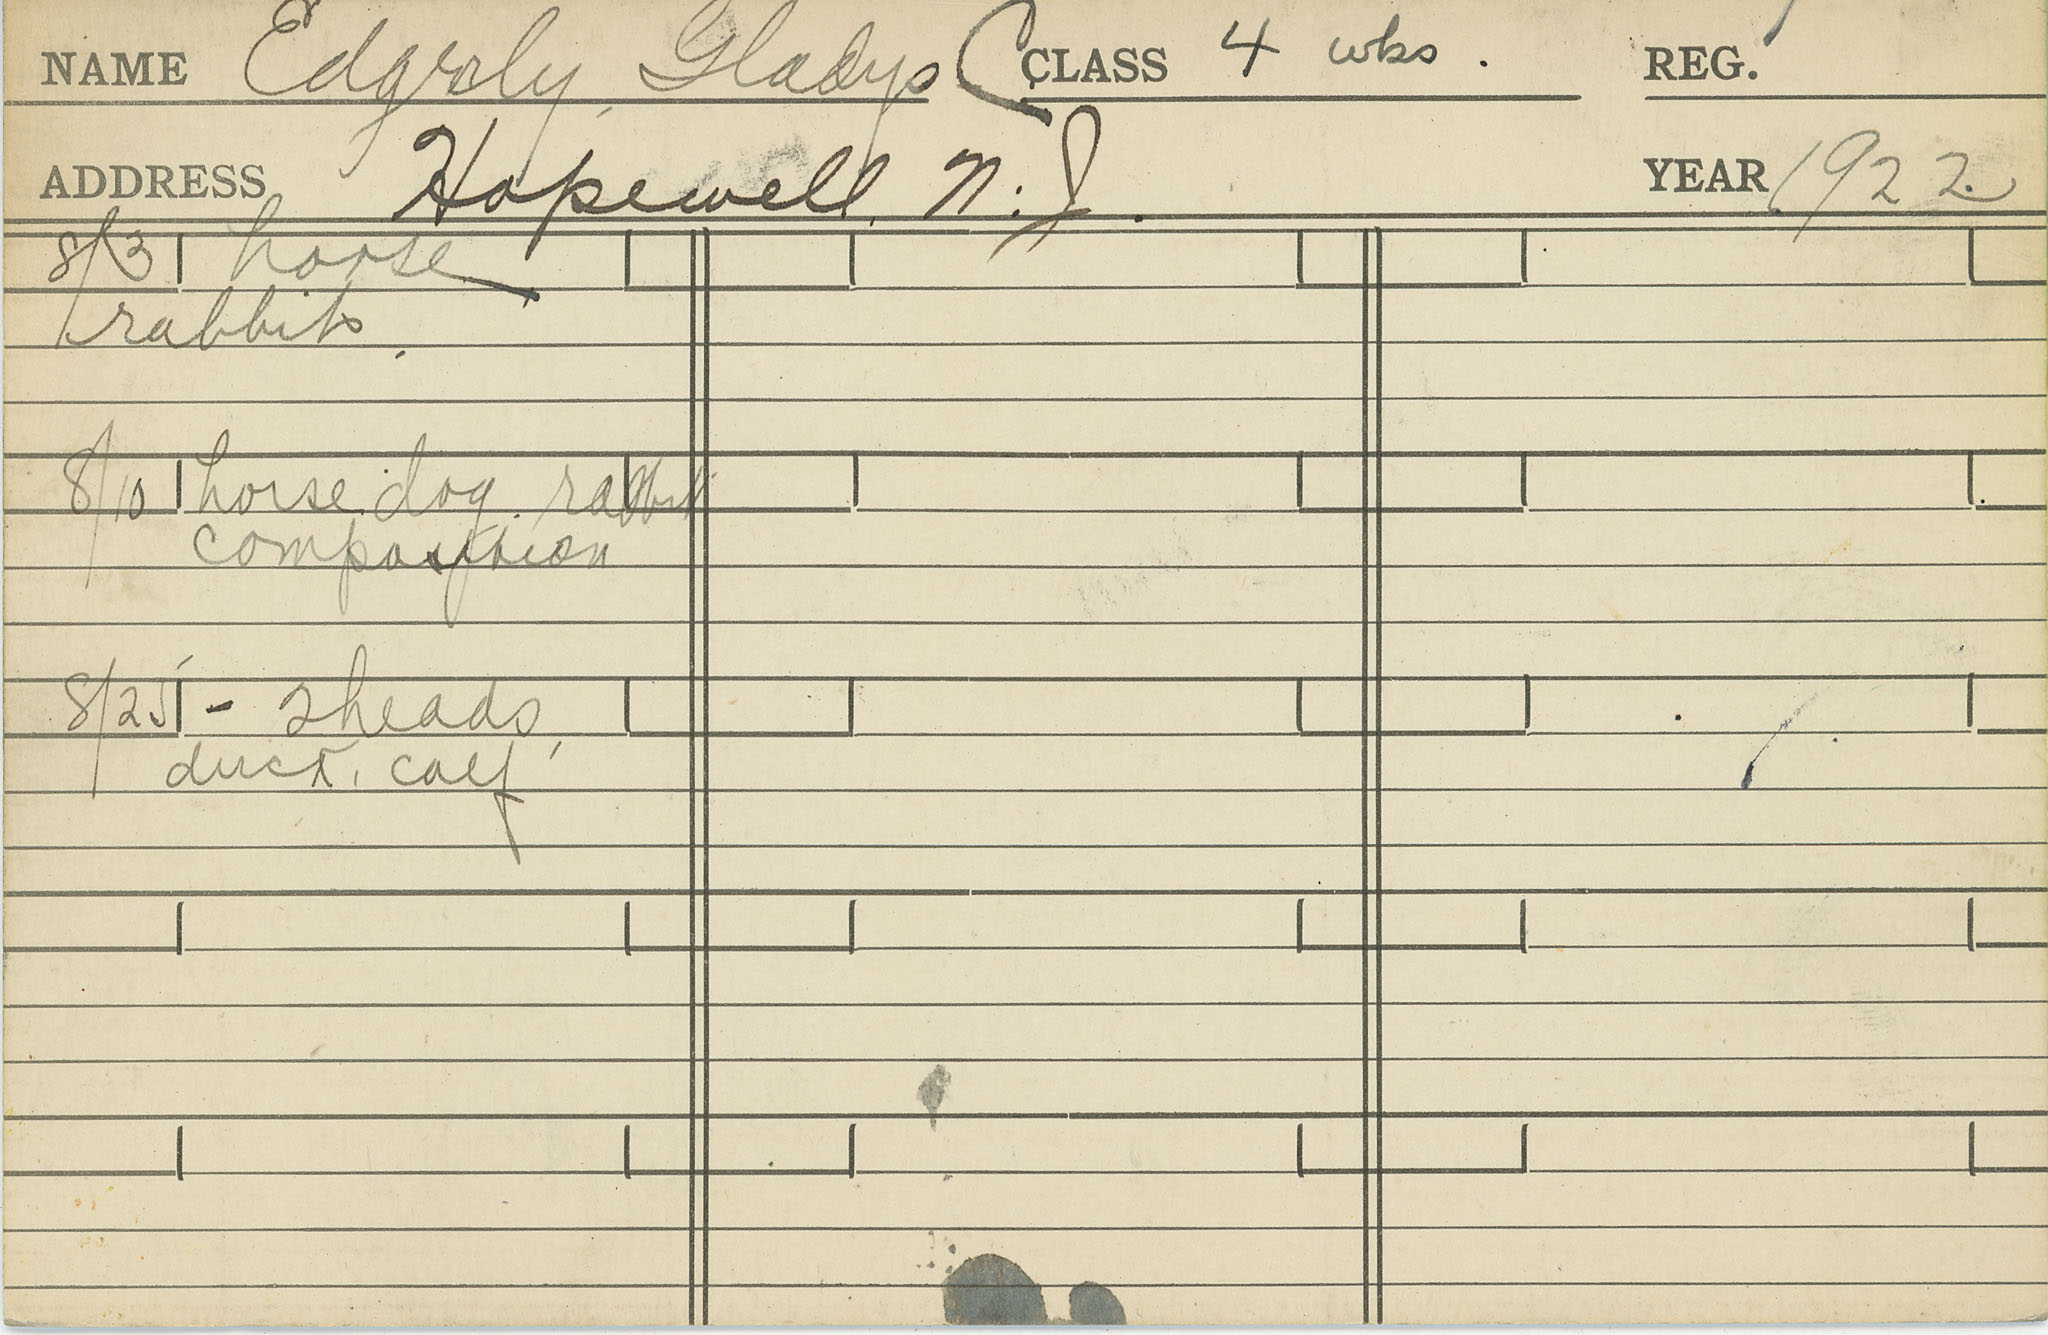 NAME Edgerly, Gladys C CLASS 4 wks. REG.
ADDRESS Hopewell, N.J. YEAR 1922
8/3 horse
rabbits
8/10 horse. dog. rabbit
composition
8/25 - 2 heads,
duck, calf